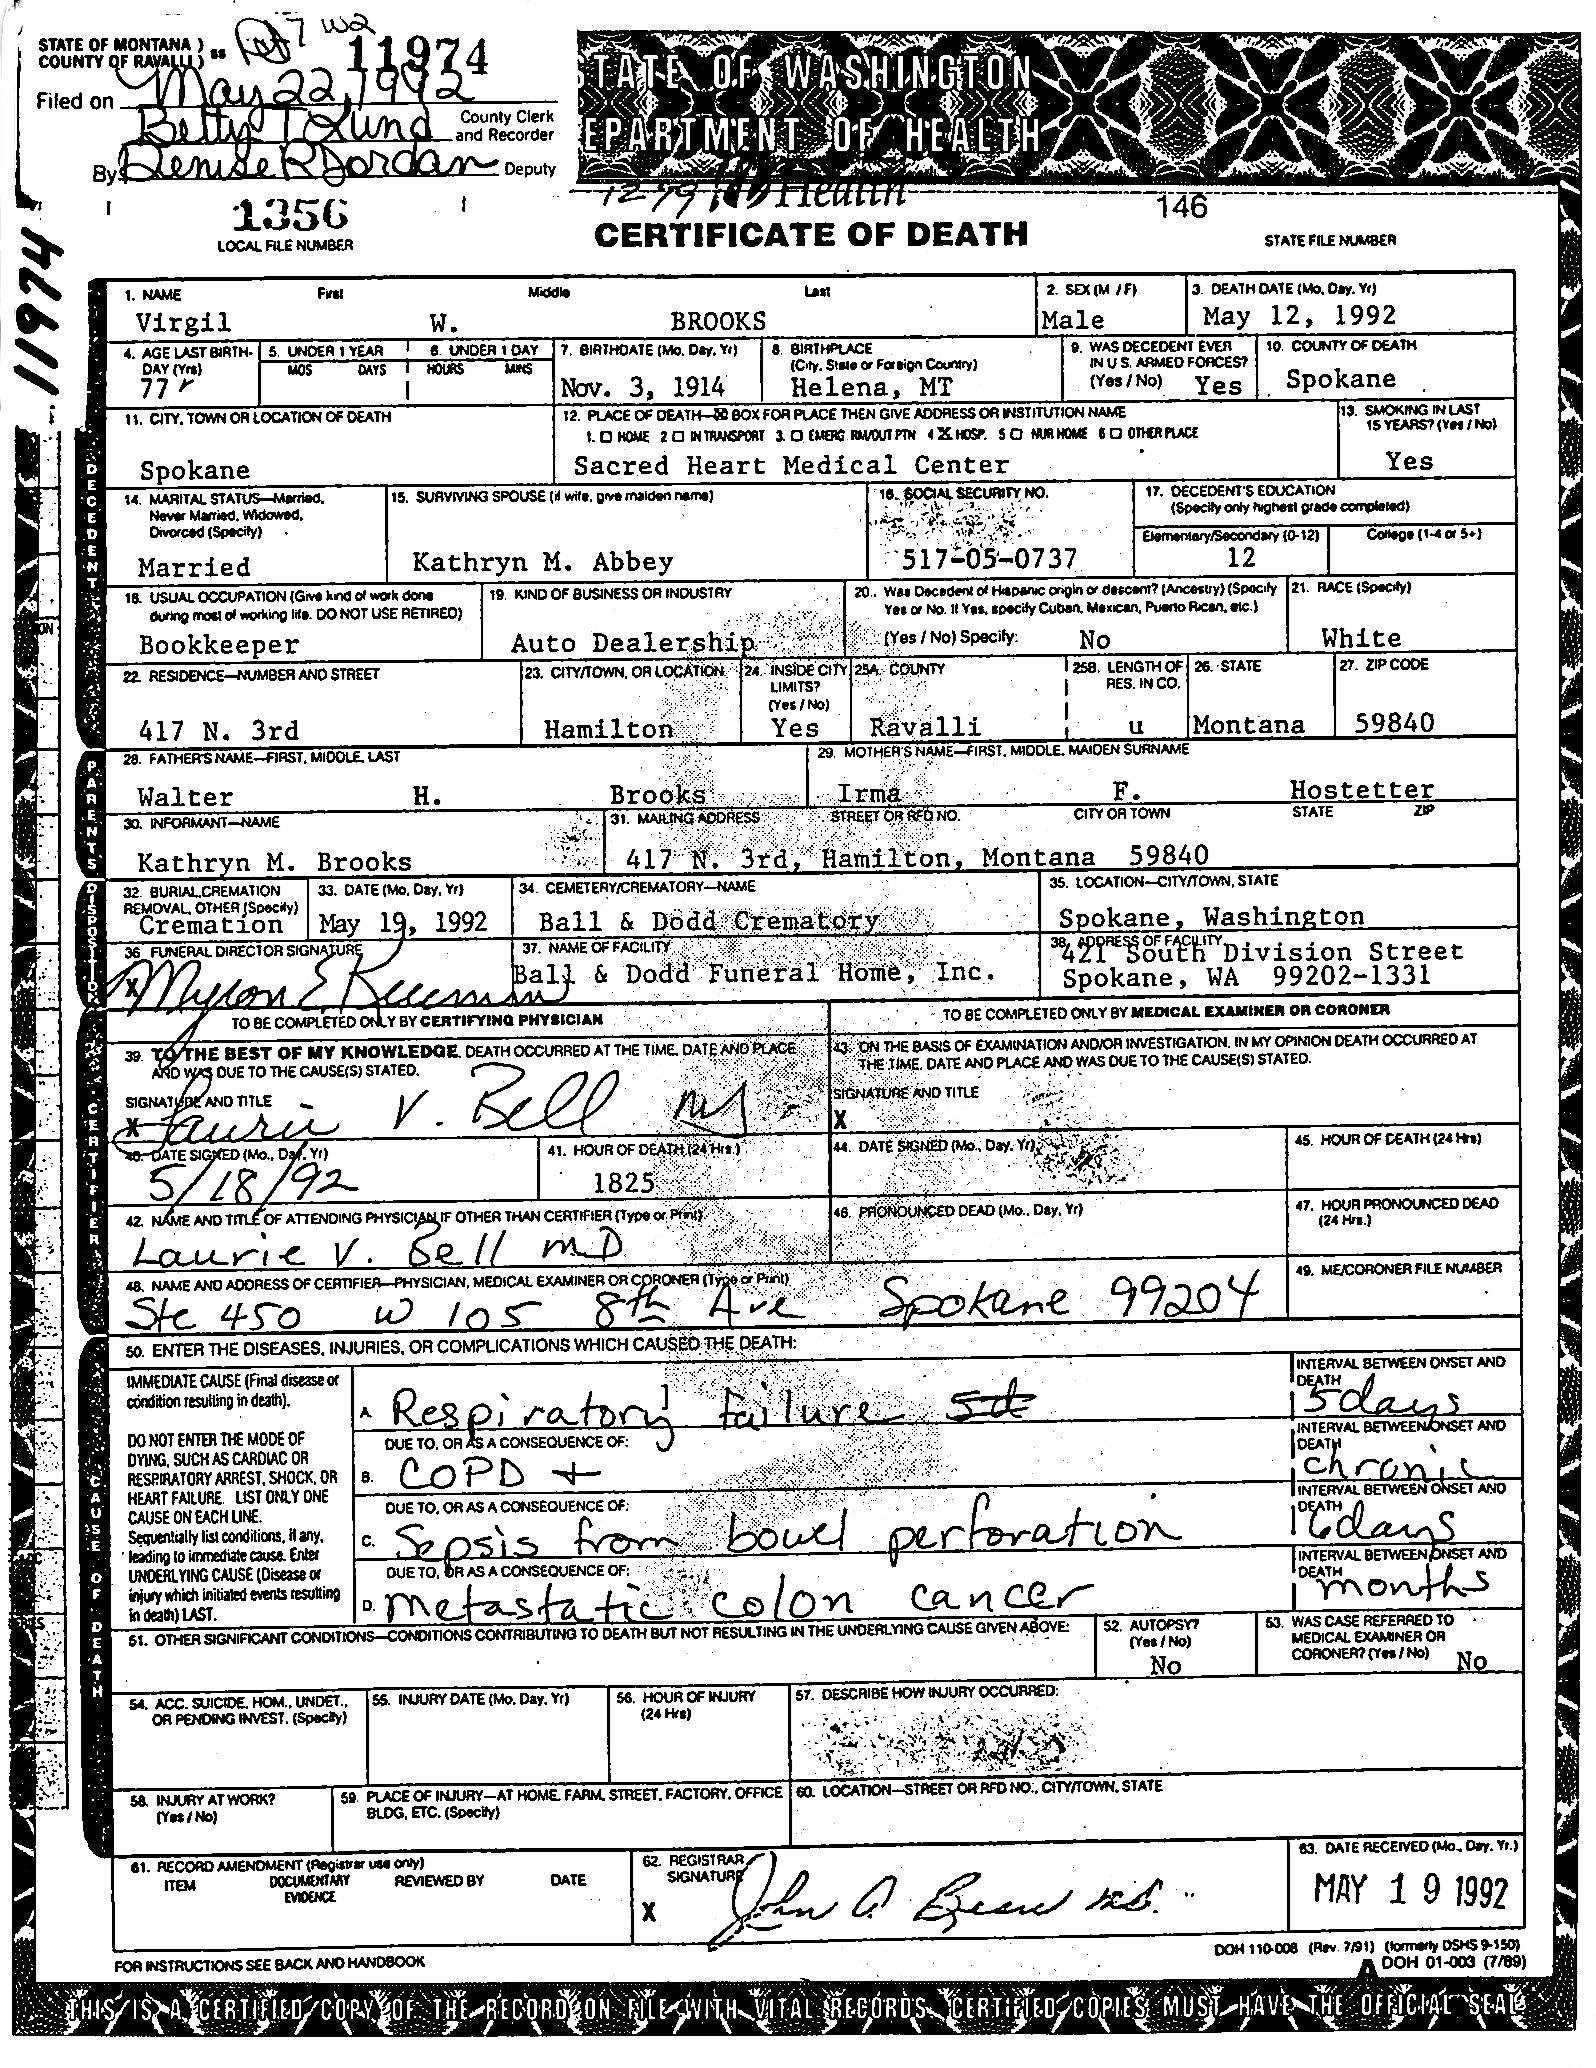 STATE OF MONTANA ) ss
COUNTY OF RAVALLI )
11974
Filed on May 22, 1992
Betty T Lund County Clerk and Recorder
By Denise R Jordan Deputy
STATE OF WASHINGTON
DEPARTMENT OF HEALTH
Health
11974
1356
LOCAL FILE NUMBER
CERTIFICATE OF DEATH
146
STATE FILE NUMBER
DECEDENT
1. NAME First Middle Last
Virgil W. BROOKS
2. SEX (M / F)
Male
3. DEATH DATE (Mo, Day, Yr)
May 12, 1992
4. AGE LAST BIRTH-
DAY (Yrs)
77
5. UNDER 1 YEAR
MOS DAYS
6. UNDER 1 DAY
HOURS MINS
7. BIRTHDATE (Mo, Day, Yr)
Nov. 3, 1914
8. BIRTHPLACE
(City, State or Foreign Country)
Helena, MT
9. WAS DECEDENT EVER
IN U S. ARMED FORCES?
(Yes / No) Yes
10. COUNTY OF DEATH
Spokane
11. CITY, TOWN OR LOCATION OF DEATH
Spokane
12. PLACE OF DEATH—☒ BOX FOR PLACE THEN GIVE ADDRESS OR INSTITUTION NAME
1. ☐ HOME 2 ☐ IN TRANSPORT 3. ☐ EMERG RM/OUT PTN 4 ☒ HOSP. 5 ☐ NUR HOME 6 ☐ OTHER PLACE
Sacred Heart Medical Center
13. SMOKING IN LAST
15 YEARS? (Yes / No)
Yes
14. MARITAL STATUS—Married,
Never Married, Widowed,
Divorced (Specify)
Married
15. SURVIVING SPOUSE (if wife, give maiden name)
Kathryn M. Abbey
16. SOCIAL SECURITY NO.
517-05-0737
17. DECEDENT'S EDUCATION
(Specify only highest grade completed)
Elementary/Secondary (0-12) College (1-4 or 5+)
12
18. USUAL OCCUPATION (Give kind of work done
during most of working life. DO NOT USE RETIRED)
Bookkeeper
19. KIND OF BUSINESS OR INDUSTRY
Auto Dealership
20. Was Decedent of Hispanic origin or descent? (Ancestry) (Specify
Yes or No. If Yes, specify Cuban, Mexican, Puerto Rican, etc.)
(Yes / No) Specify: No
21. RACE (Specify)
White
22. RESIDENCE—NUMBER AND STREET
417 N. 3rd
23. CITY/TOWN, OR LOCATION
Hamilton
24. INSIDE CITY
LIMITS?
(Yes / No)
Yes
25A. COUNTY
Ravalli
25B. LENGTH OF
RES. IN CO.
u
26. STATE
Montana
27. ZIP CODE
59840
PARENTS
28. FATHER'S NAME—FIRST, MIDDLE, LAST
Walter H. Brooks
29. MOTHER'S NAME—FIRST, MIDDLE, MAIDEN SURNAME
Irma F. Hostetter
30. INFORMANT—NAME
Kathryn M. Brooks
31. MAILING ADDRESS STREET OR RFD NO. CITY OR TOWN STATE ZIP
417 N. 3rd, Hamilton, Montana 59840
DISPOSITION
32. BURIAL, CREMATION
REMOVAL, OTHER (Specify)
Cremation
33. DATE (Mo, Day, Yr)
May 19, 1992
34. CEMETERY/CREMATORY—NAME
Ball & Dodd Crematory
35. LOCATION—CITY/TOWN, STATE
Spokane, Washington
36. FUNERAL DIRECTOR SIGNATURE
X Myron E
37. NAME OF FACILITY
Ball & Dodd Funeral Home, Inc.
38. ADDRESS OF FACILITY
421 South Division Street
Spokane, WA 99202-1331
CERTIFIER
TO BE COMPLETED ONLY BY CERTIFYING PHYSICIAN
39. TO THE BEST OF MY KNOWLEDGE, DEATH OCCURRED AT THE TIME, DATE AND PLACE
AND WAS DUE TO THE CAUSE(S) STATED.
SIGNATURE AND TITLE
X Laurie V. Bell MD
TO BE COMPLETED ONLY BY MEDICAL EXAMINER OR CORONER
43. ON THE BASIS OF EXAMINATION AND/OR INVESTIGATION, IN MY OPINION DEATH OCCURRED AT
THE TIME, DATE AND PLACE AND WAS DUE TO THE CAUSE(S) STATED.
SIGNATURE AND TITLE
X
40. DATE SIGNED (Mo., Day, Yr)
5/18/92
41. HOUR OF DEATH (24 Hrs.)
1825
44. DATE SIGNED (Mo., Day, Yr)
45. HOUR OF DEATH (24 Hrs)
42. NAME AND TITLE OF ATTENDING PHYSICIAN IF OTHER THAN CERTIFIER (Type or Print)
Laurie V. Bell MD
46. PRONOUNCED DEAD (Mo., Day, Yr)
47. HOUR PRONOUNCED DEAD
(24 Hrs.)
48. NAME AND ADDRESS OF CERTIFIER—PHYSICIAN, MEDICAL EXAMINER OR CORONER (Type or Print)
Ste 450 W 105 8th Ave Spokane 99204
49. ME/CORONER FILE NUMBER
CAUSE OF DEATH
50. ENTER THE DISEASES, INJURIES, OR COMPLICATIONS WHICH CAUSED THE DEATH:
IMMEDIATE CAUSE (Final disease or
condition resulting in death).
DO NOT ENTER THE MODE OF
DYING, SUCH AS CARDIAC OR
RESPIRATORY ARREST, SHOCK, OR
HEART FAILURE. LIST ONLY ONE
CAUSE ON EACH LINE.
Sequentially list conditions, if any,
leading to immediate cause. Enter
UNDERLYING CAUSE (Disease or
injury which initiated events resulting
in death) LAST.
A. Respiratory failure 5d
INTERVAL BETWEEN ONSET AND
DEATH
5 days
DUE TO, OR AS A CONSEQUENCE OF:
B. COPD +
INTERVAL BETWEEN ONSET AND
DEATH
chronic
DUE TO, OR AS A CONSEQUENCE OF:
C. Sepsis from bowel perforation
INTERVAL BETWEEN ONSET AND
DEATH
6 days
DUE TO, OR AS A CONSEQUENCE OF:
D. metastatic colon cancer
INTERVAL BETWEEN ONSET AND
DEATH
months
51. OTHER SIGNIFICANT CONDITIONS—CONDITIONS CONTRIBUTING TO DEATH BUT NOT RESULTING IN THE UNDERLYING CAUSE GIVEN ABOVE:
52. AUTOPSY?
(Yes / No)
No
53. WAS CASE REFERRED TO
MEDICAL EXAMINER OR
CORONER? (Yes / No) No
54. ACC. SUICIDE, HOM., UNDET.,
OR PENDING INVEST. (Specify)
55. INJURY DATE (Mo, Day, Yr)
56. HOUR OF INJURY
(24 Hrs)
57. DESCRIBE HOW INJURY OCCURRED:
58. INJURY AT WORK?
(Yes / No)
59. PLACE OF INJURY—AT HOME, FARM, STREET, FACTORY, OFFICE
BLDG, ETC. (Specify)
60. LOCATION—STREET OR RFD NO., CITY/TOWN, STATE
61. RECORD AMENDMENT (Registrar use only)
ITEM DOCUMENTARY EVIDENCE REVIEWED BY DATE
62. REGISTRAR
SIGNATURE
X John A.
63. DATE RECEIVED (Mo., Day, Yr.)
MAY 19 1992
FOR INSTRUCTIONS SEE BACK AND HANDBOOK
DOH 110-008 (Rev. 7/91) (formerly DSHS 9-150)
DOH 01-003 (7/89)
THIS IS A CERTIFIED COPY OF THE RECORD ON FILE WITH VITAL RECORDS. CERTIFIED COPIES MUST HAVE THE OFFICIAL SEAL